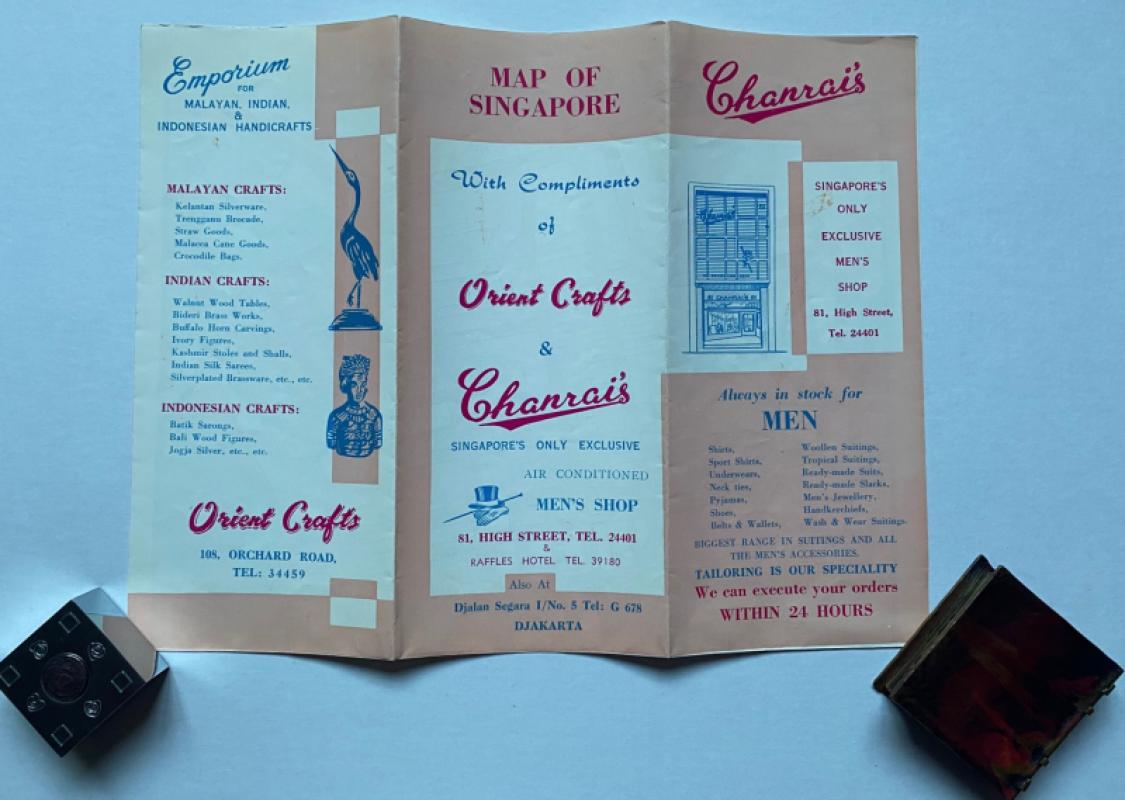 Emporium
FOR
MALAYAN, INDIAN,
&
INDONESIAN HANDICRAFTS
MALAYAN CRAFTS:
Kelantan Silverware,
Trengganu Brocade,
Straw Goods,
Malacca Cane Goods,
Crocodile Bags.
INDIAN CRAFTS:
Walnut Wood Tables,
Bideri Brass Works,
Buffalo Horn Carvings,
Ivory Figures,
Kashmir Stoles and Shalls,
Indian Silk Sarees,
Silverplated Brassware, etc., etc.
INDONESIAN CRAFTS:
Batik Sarongs,
Bali Wood Figures,
Jogja Silver, etc., etc.
Orient Crafts
108, ORCHARD ROAD,
TEL: 34459
MAP OF
SINGAPORE
With Compliments
of
Orient Crafts
&
Chanrai's
SINGAPORE'S ONLY EXCLUSIVE
AIR CONDITIONED
MEN'S SHOP
81, HIGH STREET, TEL. 24401
&
RAFFLES HOTEL TEL. 39180
Also At
Djalan Segara I/No. 5 Tel: G 678
DJAKARTA
Chanrai's
CHANRAI'S
SINGAPORE'S
ONLY
EXCLUSIVE
MEN'S
SHOP
81, High Street,
Tel. 24401
Always in stock for
MEN
Shirts,
Sport Shirts,
Underwears,
Neck ties,
Pyjamas,
Shoes,
Belts & Wallets,
Woollen Suitings,
Tropical Suitings,
Ready-made Suits,
Ready-made Slacks,
Men's Jewellery,
Handkerchiefs,
Wash & Wear Suitings.
BIGGEST RANGE IN SUITINGS AND ALL
THE MEN'S ACCESSORIES.
TAILORING IS OUR SPECIALITY
We can execute your orders
WITHIN 24 HOURS